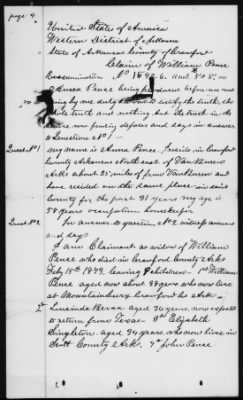 page 4
United States of America
Western District of Arkansas
State of Arkansas County of Crawford
Claim of William Pence
No 16
Anna Pence being before me
being by me duly to testify the truth, the
whole truth and nothing but the truth in the
deposes and says in answer
to Question No 1
Quest. No 1 my name is Anna Pence, reside in Crawford
County Arkansas North east of Van Buren
Arks about 25 miles from Van Buren and
have resided on the same place in said
County for the past 31 years my age is
58 years occupation housekeeper
Quest No 2 In answer to question No 2 witness answers
and says
I am Claimant as widow of William
Pence who died in Crawford County Arks
Feby 15th 1873. leaving 8 children - 1st William
Pence aged now about 38 years who now lives
at Mountainburg Crawford Co Arks
2nd Lucinda aged 36 years, now expects
to return from Texas - 3rd Elizabeth
Singleton aged 34 years who now lives in
Scott County Ark, 4th John Pence